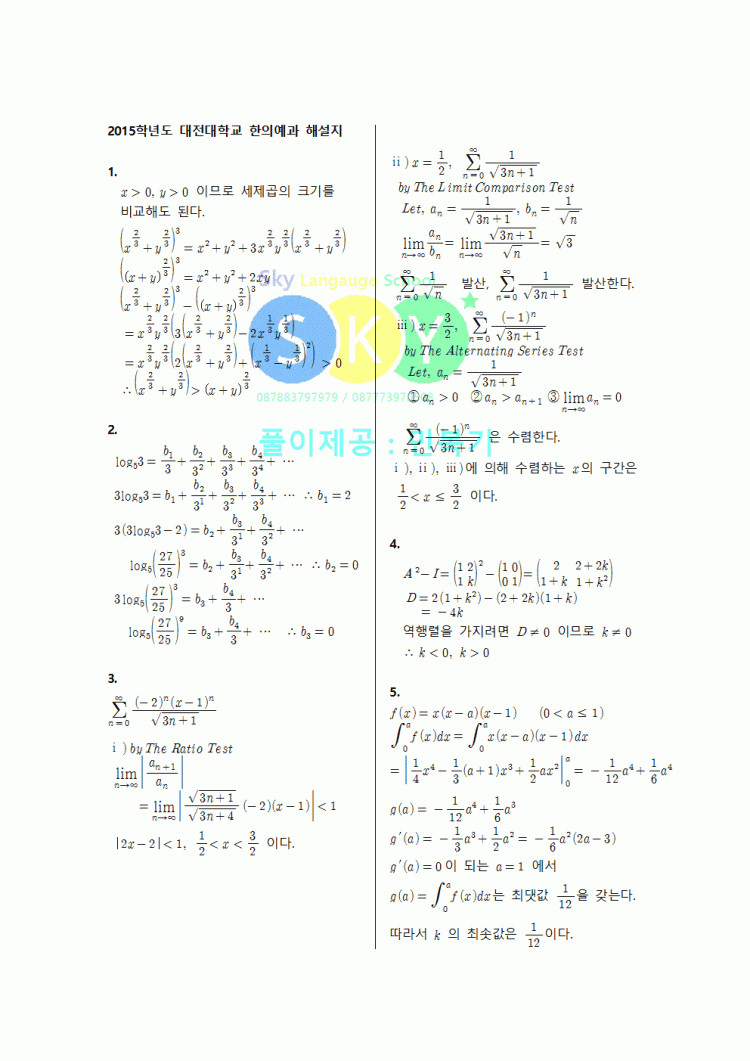 2015학년도 대전대학교 한의예과 해설지
1.
x > 0, y > 0 이므로 세제곱의 크기를
비교해도 된다.
(x^{2/3} + y^{2/3})^3 = x^2 + y^2 + 3x^{2/3}y^{2/3}(x^{2/3} + y^{2/3})
((x+y)^{2/3})^3 = x^2 + y^2 + 2xy
(x^{2/3} + y^{2/3})^3 - ((x+y)^{2/3})^3
= x^{2/3}y^{2/3}(3(x^{2/3} + y^{2/3}) - 2x^{1/3}y^{1/3})
= x^{2/3}y^{2/3}(2(x^{2/3} + y^{2/3}) + (x^{1/3} - y^{1/3})^2) > 0
∴ (x^{2/3} + y^{2/3}) > (x+y)^{2/3}
2.
log₅3 = b₁/3 + b₂/3² + b₃/3³ + b₄/3⁴ + ⋯
3log₅3 = b₁ + b₂/3¹ + b₃/3² + b₄/3³ + ⋯ ∴ b₁ = 2
3(3log₅3 - 2) = b₂ + b₃/3¹ + b₄/3² + ⋯
log₅(27/25)³ = b₂ + b₃/3¹ + b₄/3² + ⋯ ∴ b₂ = 0
3log₅(27/25)³ = b₃ + b₄/3 + ⋯
log₅(27/25)⁹ = b₃ + b₄/3 + ⋯ ∴ b₃ = 0
3.
∑_{n=0}^{∞} (-2)^n(x-1)^n / √(3n+1)
ⅰ) by The Ratio Test
lim_{n→∞} |a_{n+1}/a_n|
= lim_{n→∞} |√(3n+1)/√(3n+4) (-2)(x-1)| < 1
|2x-2| < 1, 1/2 < x < 3/2 이다.
ⅱ) x = 1/2, ∑_{n=0}^{∞} 1/√(3n+1)
by The Limit Comparison Test
Let, a_n = 1/√(3n+1), b_n = 1/√n
lim_{n→∞} a_n/b_n = lim_{n→∞} √(3n+1)/√n = √3
∑_{n=0}^{∞} 1/√n 발산, ∑_{n=0}^{∞} 1/√(3n+1) 발산한다.
ⅲ) x = 3/2, ∑_{n=0}^{∞} (-1)^n/√(3n+1)
by The Alternating Series Test
Let, a_n = 1/√(3n+1)
① a_n > 0 ② a_n > a_{n+1} ③ lim_{n→∞} a_n = 0
∑_{n=0}^{∞} (-1)^n/√(3n+1) 은 수렴한다.
ⅰ), ⅱ), ⅲ)에 의해 수렴하는 x의 구간은
1/2 < x ≤ 3/2 이다.
4.
A² - I = (1 2; 1 k)² - (1 0; 0 1) = (2 2+2k; 1+k 1+k²)
D = 2(1+k²) - (2+2k)(1+k)
= -4k
역행렬을 가지려면 D ≠ 0 이므로 k ≠ 0
∴ k < 0, k > 0
5.
f(x) = x(x-a)(x-1) (0 < a ≤ 1)
∫₀^a f(x)dx = ∫₀^a x(x-a)(x-1)dx
= |1/4 x⁴ - 1/3 (a+1)x³ + 1/2 ax²|₀^a = -1/12 a⁴ + 1/6 a⁴
g(a) = -1/12 a⁴ + 1/6 a³
g′(a) = -1/3 a³ + 1/2 a² = -1/6 a²(2a-3)
g′(a) = 0이 되는 a = 1 에서
g(a) = ∫₀^a f(x)dx는 최댓값 1/12을 갖는다.
따라서 k 의 최솟값은 1/12이다.
Sky Langauge School
SKY
087883797979
풀이제공 :